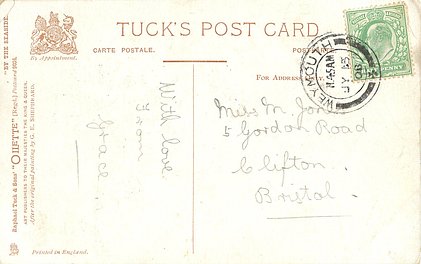 TUCK'S POST CARD
CARTE POSTALE.
By Appointment.
For Address
"BY THE SEASIDE."
Raphael Tuck & Sons' "OILETTE" [Regd.] Postcard
ART PUBLISHERS TO THEIR MAJESTIES THE KING & QUEEN.
After the original painting by G. E. SHEPHEARD.
Printed in England.
WEYMOUTH
JY 15
09
With love
from
Grace
Miss M. Jon
5 Gordon Road
Clifton
Bristol